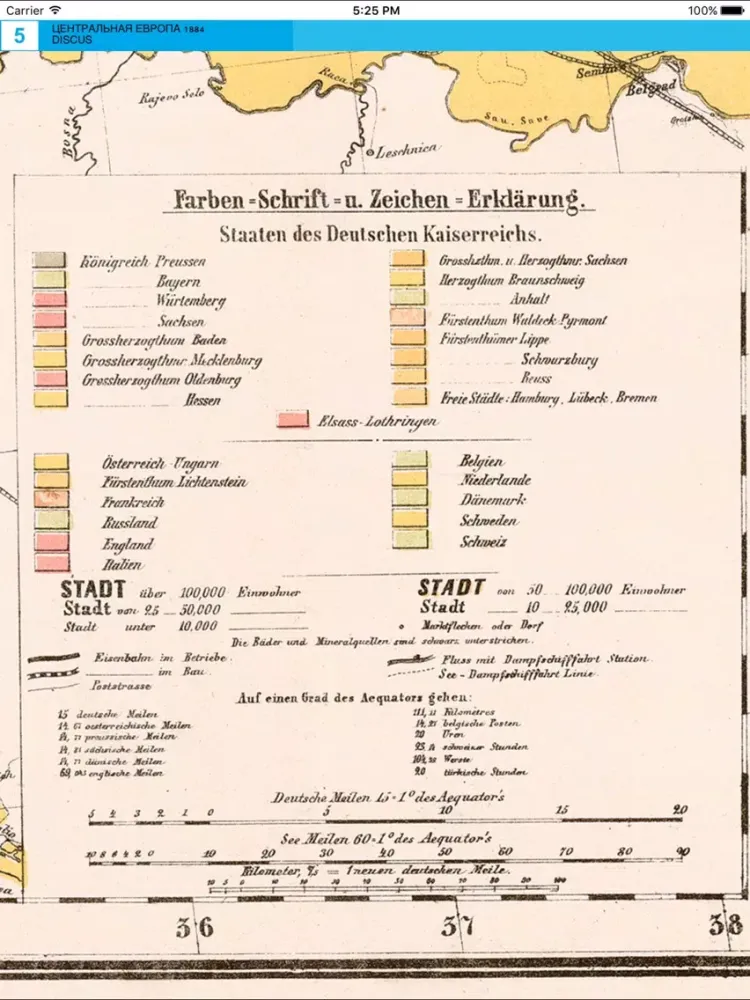 Carrier 5:25 PM 100%
5 ЦЕНТРАЛЬНАЯ ЕВРОПА 1884
DISCUS
Raca
Semlin
Rajevo Selo
Belgrad
Bosna
Sau. Save
Leschnica
Farben=Schrift=u. Zeichen=Erklärung.
Staaten des Deutschen Kaiserreichs.
Königreich Preussen
Bayern
Würtemberg
Sachsen
Grossherzogthum Baden
Grossherzogthmr. Mecklenburg
Grossherzogthum Oldenburg
Hessen
Grosshzthm. u. Herzogthmr. Sachsen
Herzogthum Braunschweig
Anhalt
Fürstenthum Waldeck Pyrmont
Fürstenthümer Lippe
Schwarzburg
Reuss
Freie Städte: Hamburg, Lübeck, Bremen
Elsass-Lothringen
Österreich-Ungarn
Fürstenthum Lichtenstein
Frankreich
Russland
England
Italien
Belgien
Niederlande
Dänemark
Schweden
Schweiz
STADT über 100,000 Einwohner
Stadt von 25 _ 50,000
Stadt unter 10,000
STADT von 50 _ 100,000 Einwohner
Stadt 10 _ 25,000
Marktflecken oder Dorf
Die Bäder und Mineralquellen sind schwarz unterstrichen.
Eisenbahn im Betriebe.
im Bau.
Poststrasse
Fluss mit Dampfschifffahrt Station
See-Dampfschifffahrt Linie
Auf einen Grad des Aequators gehen:
15 deutsche Meilen
14, 67 oesterreichische Meilen
14, 77 preussische Meilen
14, 81 sächsische Meilen
14, 77 dänische Meilen
69, 043 englische Meilen
111, 11 Kilometres
14, 21 belgische Posten
20 Uren
23, 14 schweizer Stunden
104, 20 Werste
20 türkische Stunden
Deutsche Meilen 15=1° des Aequator's
5 4 3 2 1 0 5 10 15 20
See Meilen 60=1° des Aequator's
10 8 6 4 2 0 10 20 30 40 50 60 70 80 90
Kilometer, 7½ = 1 neuen deutschen Meile.
10 5 0 10 20 30 40 50 60 70 80 90 100
36 37 38